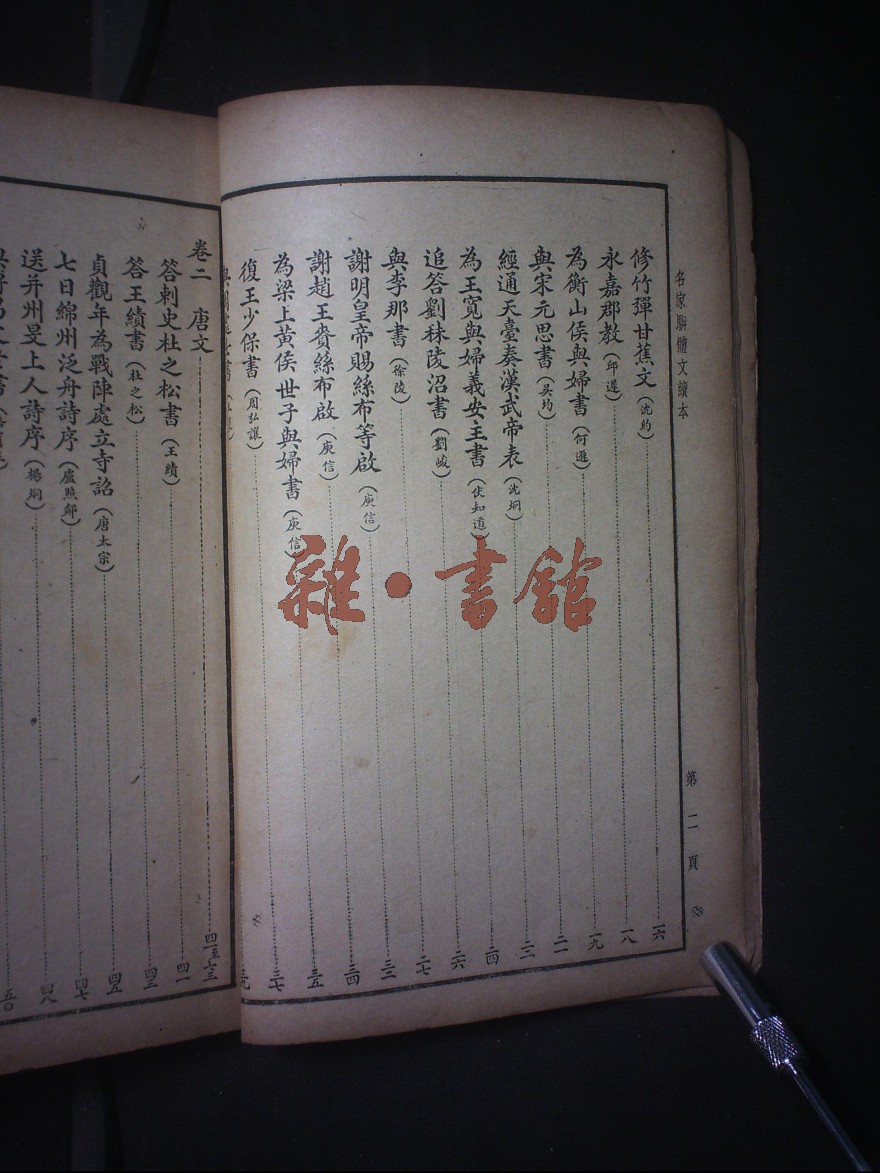 名家駢體文讀本
第二頁
修竹彈甘蕉文(沈約) 一六
永嘉郡教(邱遲) 一八
為衡山侯與婦書(何遜) 一九
與宋元思書(吳均) 二一
經通天臺奏漢武帝表(沈炯) 二四
為王寬與婦義安主書(伏知道) 二六
追答劉秣陵沼書(劉峻) 二七
與李那書(徐陵) 三三
謝明皇帝賜絲布等啟(庾信) 三四
謝趙王賚絲布啟(庾信) 三五
為梁上黃侯世子與婦書(庾信) 三七
復王少保書(周弘讓)
卷二 唐文 四一至七三
答刺史杜之松書(王績) 四一
答王績書(杜之松) 四三
貞觀年為戰陣處立寺詔(唐太宗) 四五
七日綿州泛舟詩序(盧照鄰) 四七
送并州旻上人詩序(楊炯) 四八
五〇
雜·書館